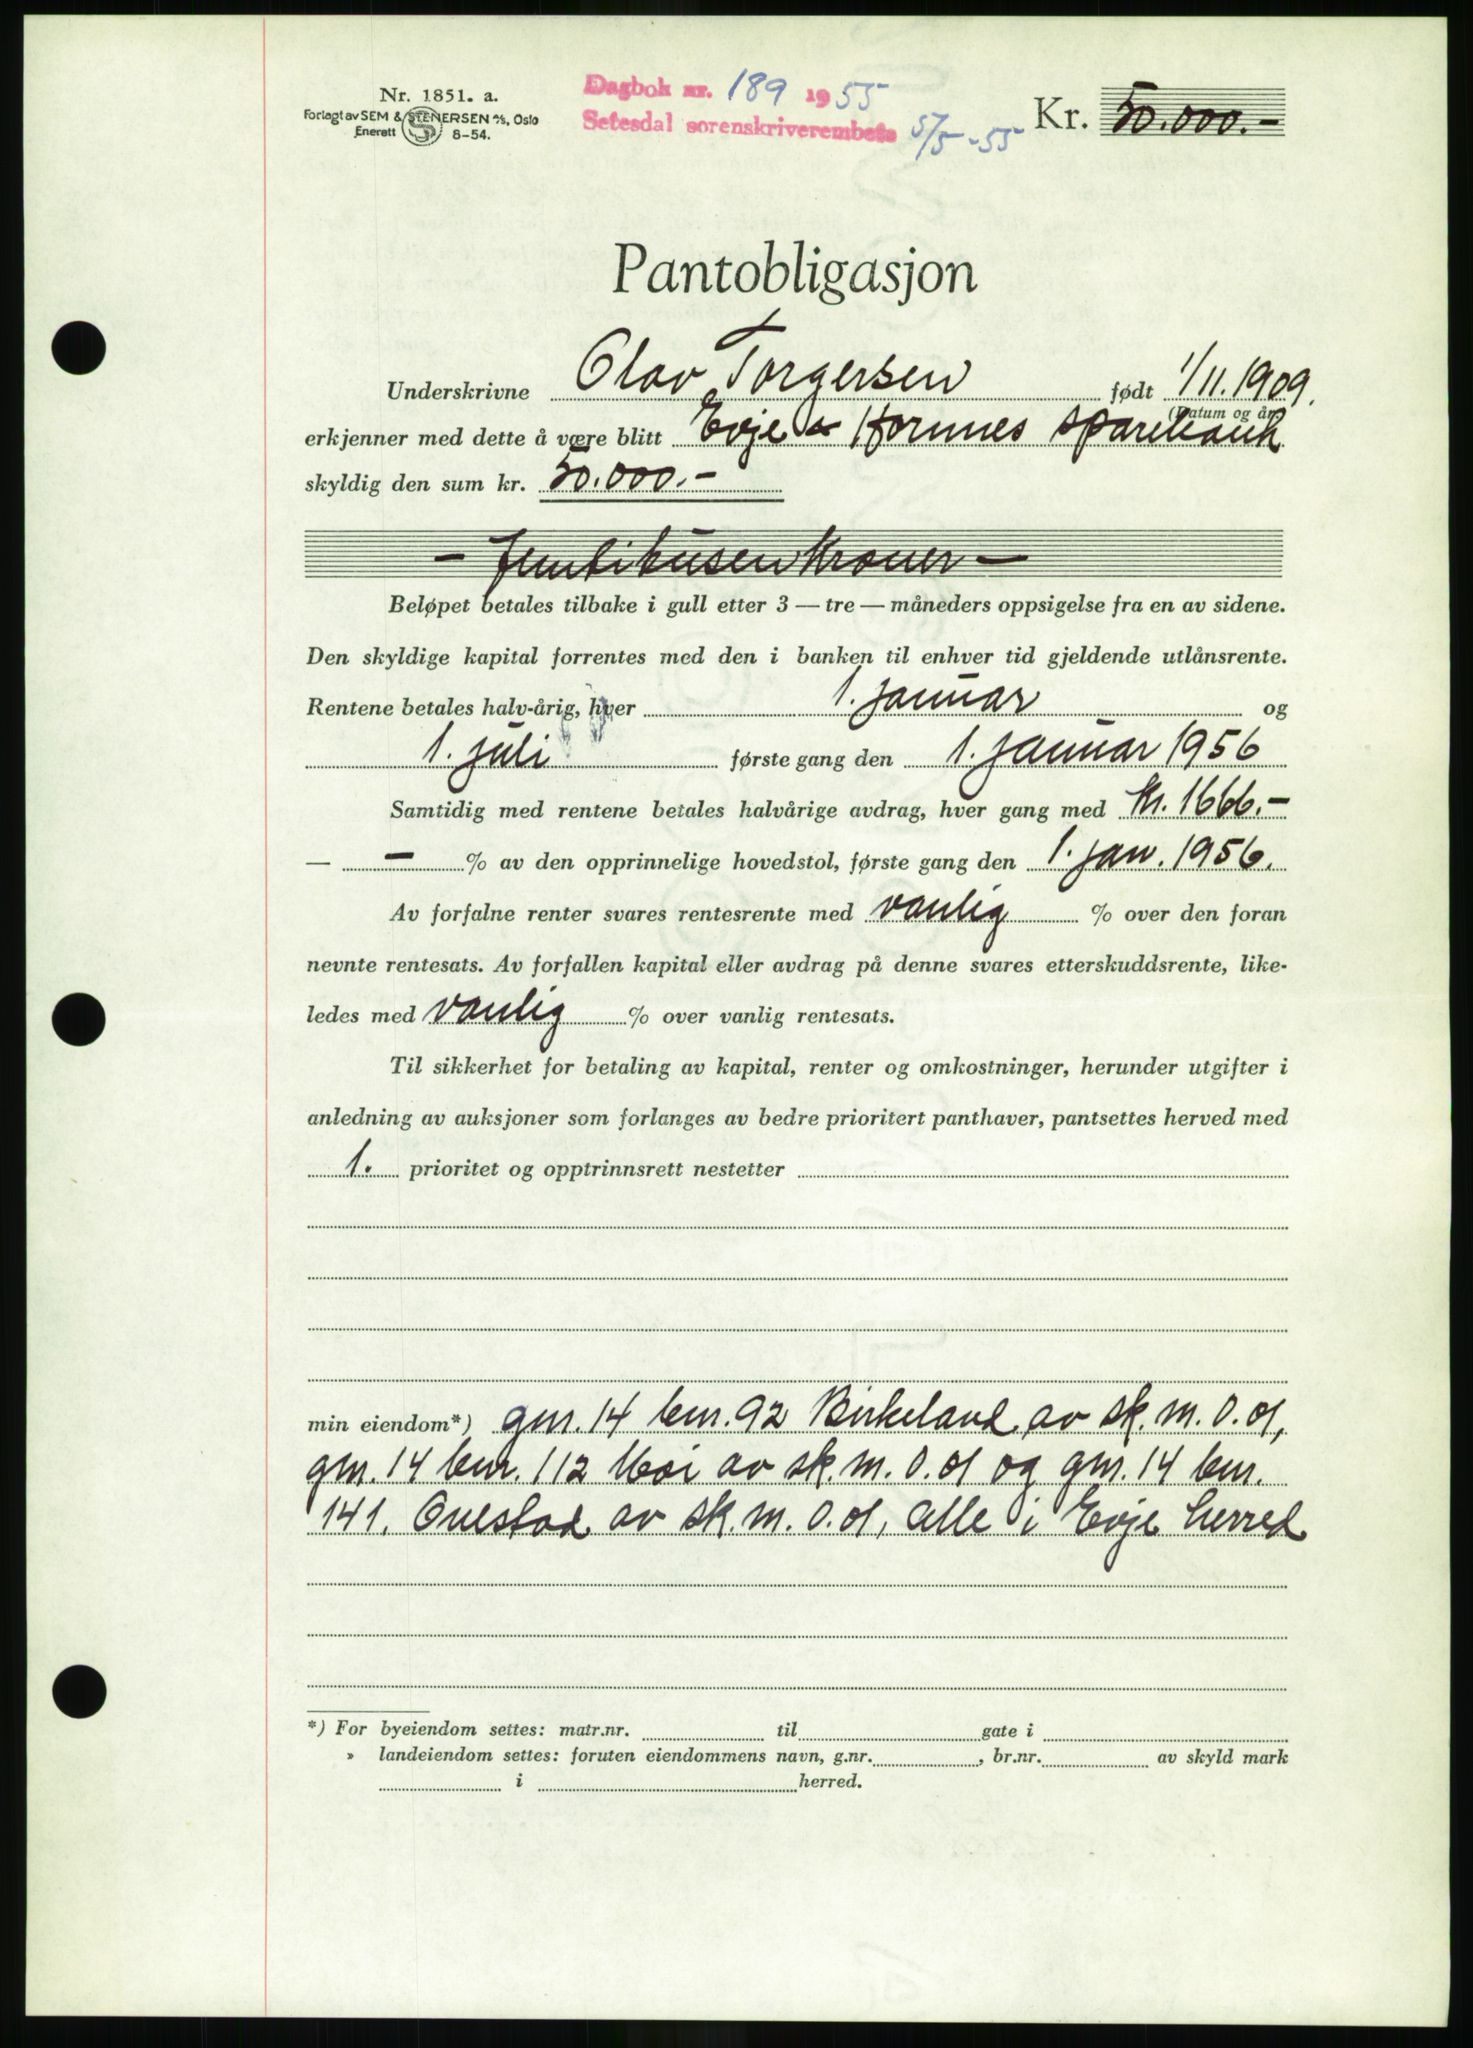 Nr. 1851. a.
Forlagt av SEM & STENERSEN A/S, Oslo
Enerett 8-54.
Dagbok nr. 189 1955
Setesdal sorenskriverembete 5/5-55
Kr. 50.000.-
Pantobligasjon
Underskrivne Olav Torgersen født 1/11.1909.
(Datum og år)
erkjenner med dette å være blitt Evje & Hornnes sparebank
skyldig den sum kr. 50.000.-
- femtitusen kroner -
Beløpet betales tilbake i gull etter 3 — tre — måneders oppsigelse fra en av sidene.
Den skyldige kapital forrentes med den i banken til enhver tid gjeldende utlånsrente.
Rentene betales halv-årig, hver 1. januar og
1. juli første gang den 1. januar 1956
Samtidig med rentene betales halvårige avdrag, hver gang med kr. 1666.-
— — % av den opprinnelige hovedstol, første gang den 1. jan. 1956.
Av forfalne renter svares rentesrente med vanlig % over den foran
nevnte rentesats. Av forfallen kapital eller avdrag på denne svares etterskuddsrente, like-
ledes med vanlig % over vanlig rentesats.
Til sikkerhet for betaling av kapital, renter og omkostninger, herunder utgifter i
anledning av auksjoner som forlanges av bedre prioritert panthaver, pantsettes herved med
1. prioritet og opptrinnsrett nestetter
min eiendom*) gnr. 14 bnr. 92 Birkeland av sk. m. 0.01,
gnr. 14 bnr. 112 Moi av sk. m. 0.01 og gnr. 14 bnr.
141. Ovestad av sk. m. 0.01, alle i Evje herred
*) For byeiendom settes: matr.nr. til gate i
» landeiendom settes: foruten eiendommens navn, g.nr. , br.nr. av skyld mark
i herred.